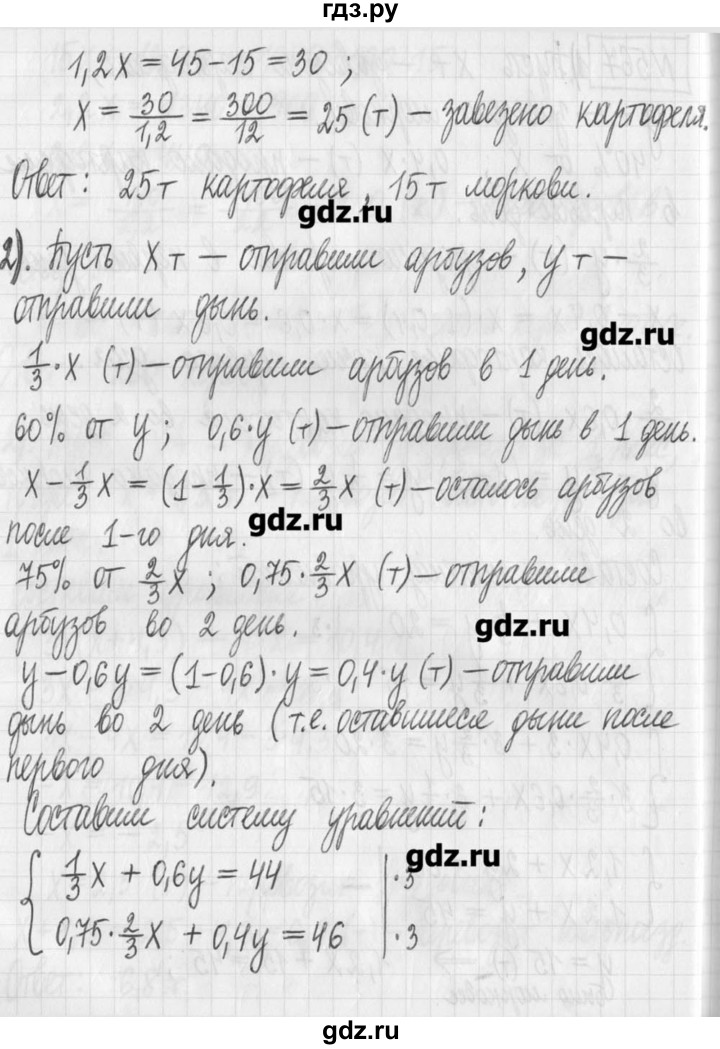 гдз.ру
1,2x = 45-15 = 30 ;
x = 30/1,2 = 300/12 = 25 (т) — завезено картофеля.
Ответ: 25т картофеля, 15т моркови.
gdz.ru
2). Пусть x т — отправили арбузов, y т —
отправили дынь.
gdz.ru
1/3·x (т) — отправили арбузов в 1 день.
60% от y ; 0,6·y (т) — отправили дынь в 1 день.
x - 1/3x = (1-1/3)·x = 2/3x (т) — осталось арбузов
gdz.ru
после 1-го дня.
75% от 2/3x ; 0,75·2/3x (т) — отправили
арбузов во 2 день.
gdz.ru
y - 0,6y = (1-0,6)·y = 0,4·y (т) — отправили
дынь во 2 день (т.е. оставшиеся дыни после
первого дня).
Составим систему уравнений:
gdz.ru
{ 1/3x + 0,6y = 44 | ·3
0,75·2/3x + 0,4y = 46 | ·3
gdz.ru